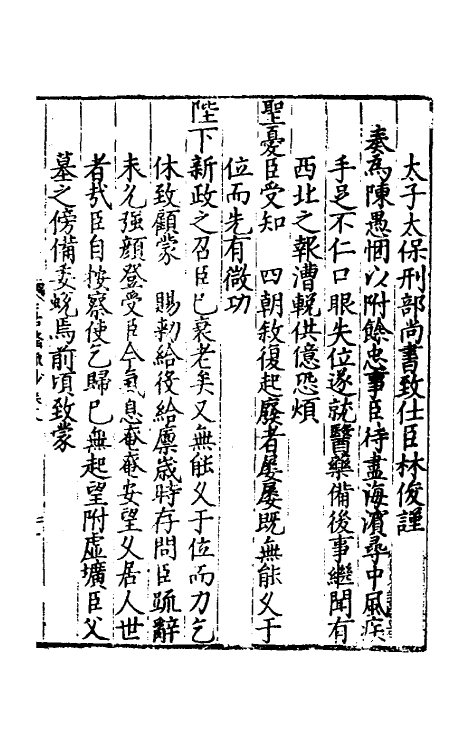 太子太保刑部尚書致仕臣林俊謹
奏為陳愚悃以附餘忠事臣待盡海濱尋中風疾
手足不仁口眼失位遂就醫藥備後事繼聞有
西北之報漕輓供億恐煩
聖憂臣受知　四朝敘復起廢者屢屢既無能乂于
位而先有微功
陛下新政之召臣已衰老矣又無能乂于位而力乞
休致顧蒙　賜勑給役給廪歲時存問臣疏辭
未允强顔登受臣今氣息奄奄安望乂居人世
者㢤臣自按察使乞歸已無起望附虛壙臣父
墓之傍備委蛻焉前頃致蒙